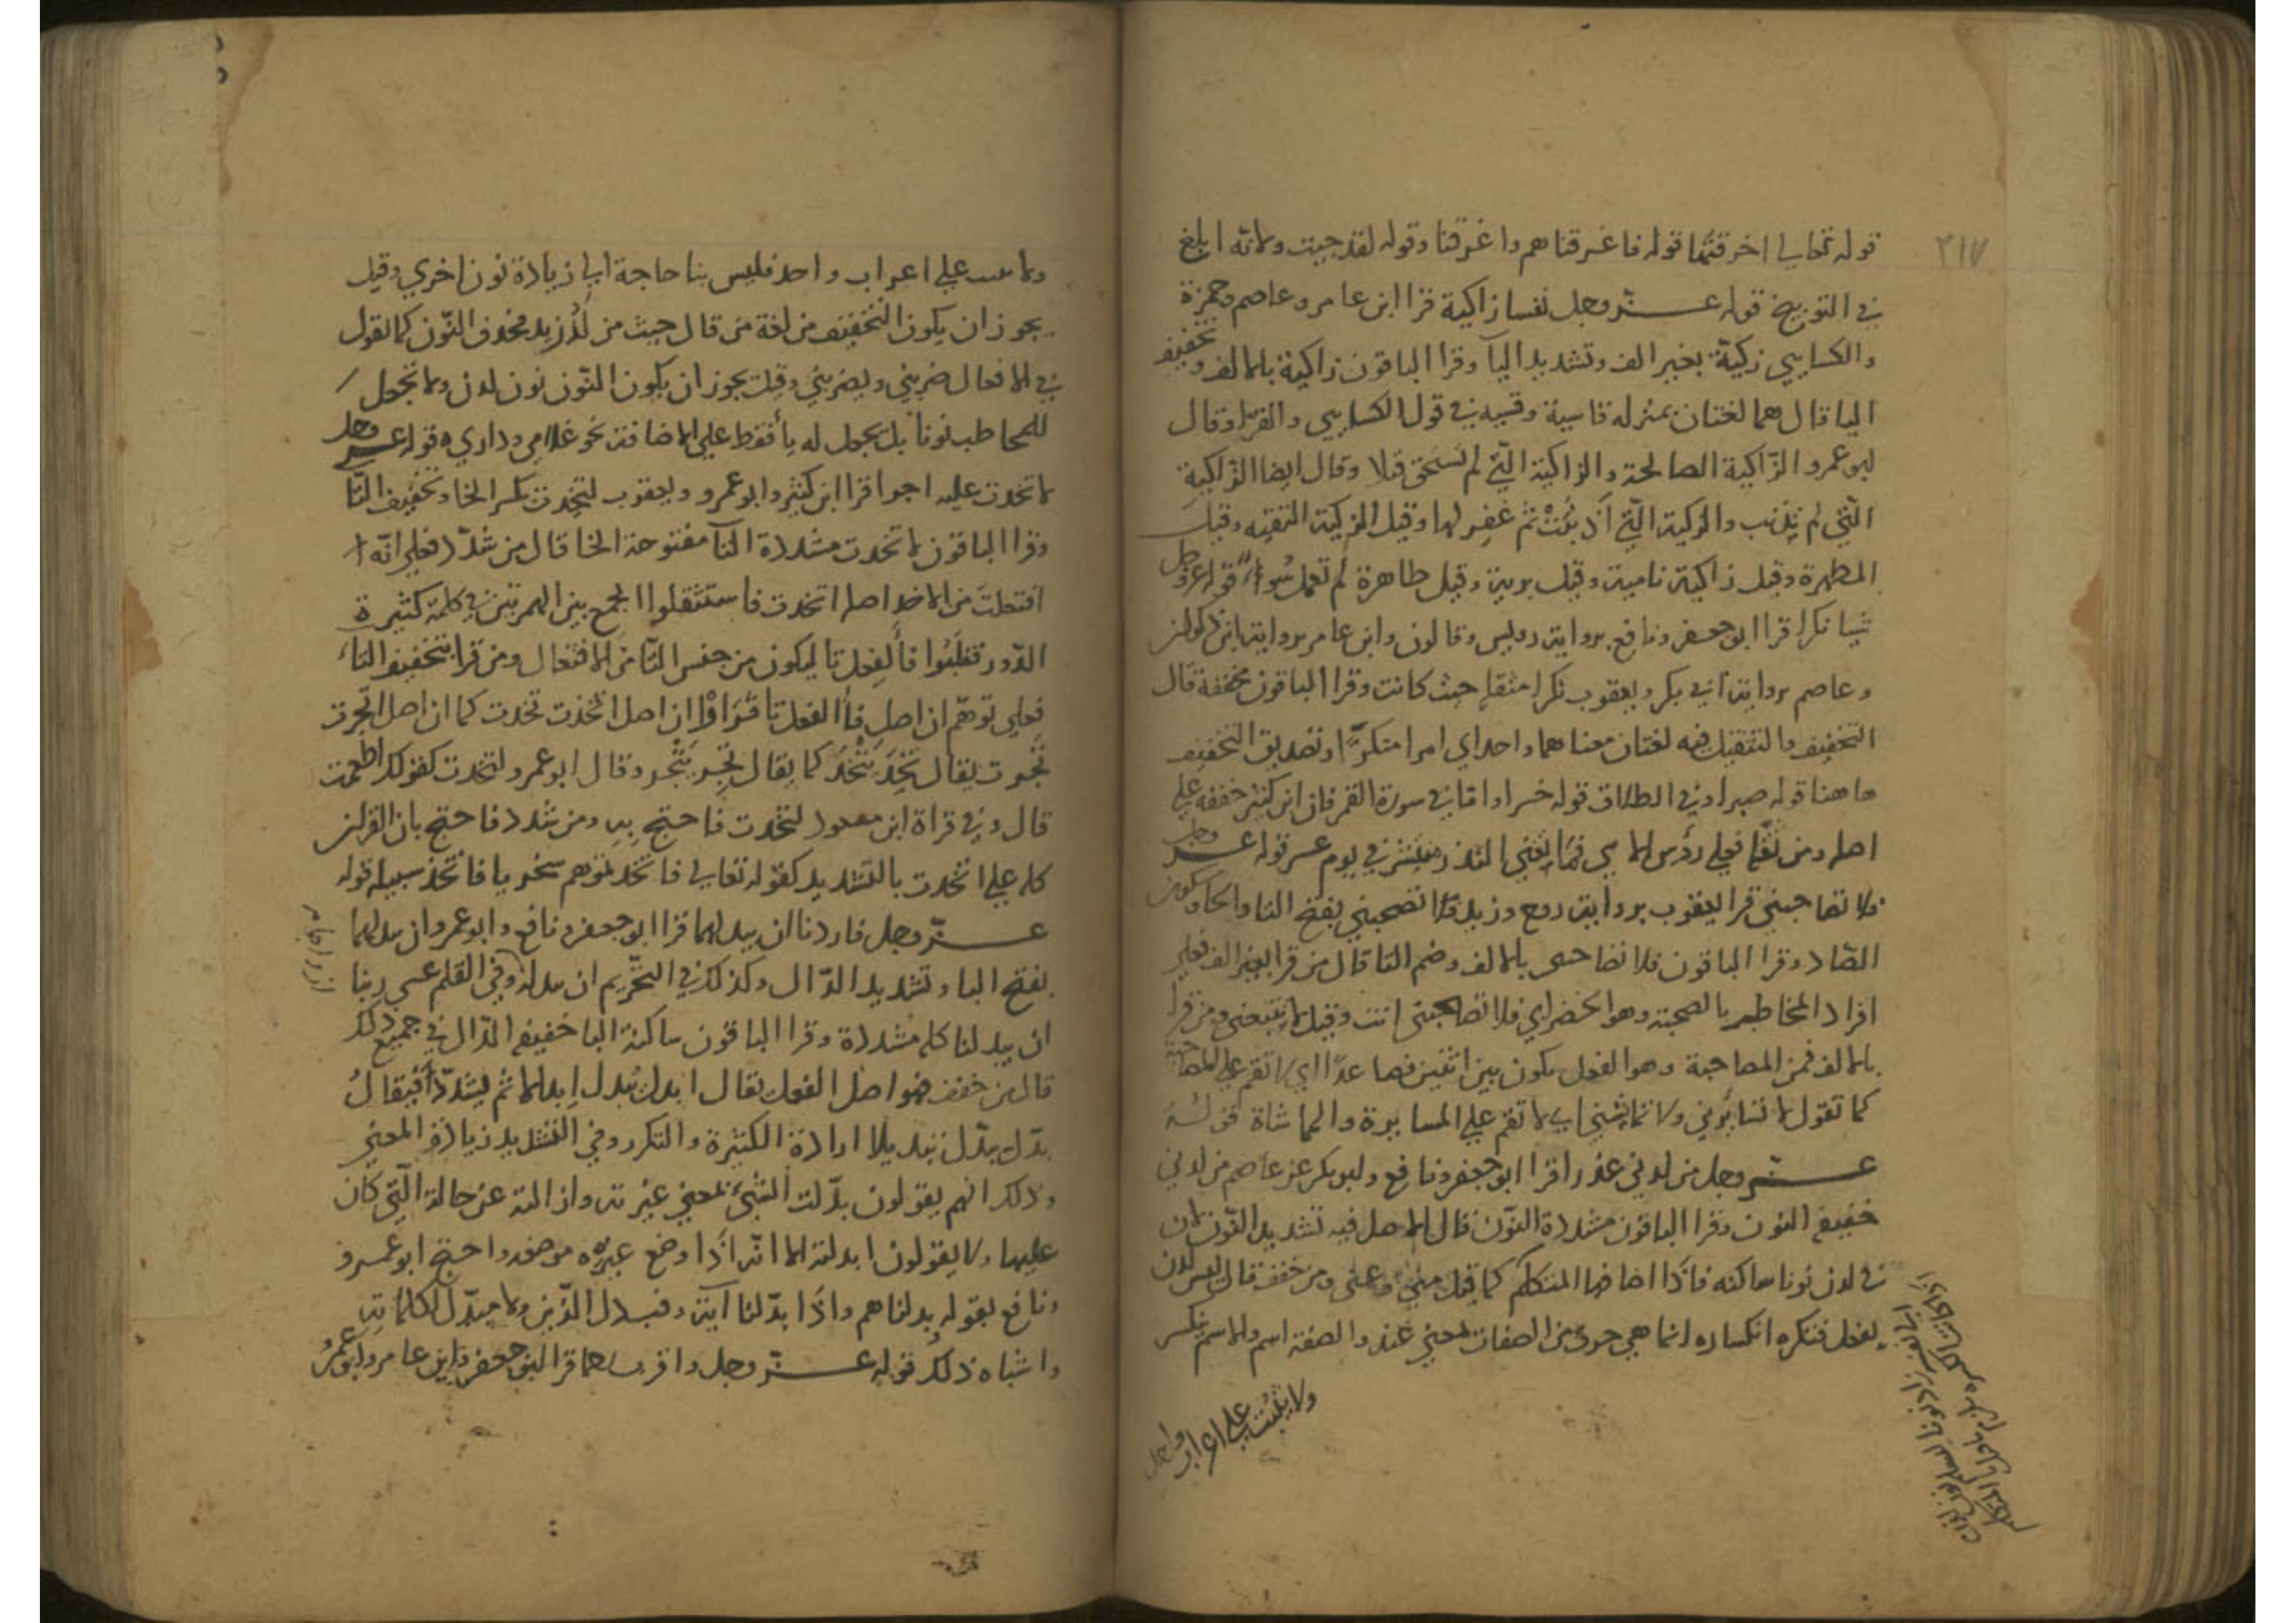 ٢١٧
قوله تعالى اخرقتها قوله فاغرقناهم واغرقنا وقوله لقد جيت ولانه ابلغ
في التوبيخ قوله عز وجل نفسا زاكية قرا ابن عامر وعاصم وحمزة
والكسايي زكيّة بغير الف وتشديد اليآ وقرا الباقون زاكية بالالف وتخفيف
اليا قال هما لغتان بمنزله قاسية وقسيه في قول الكسايي والفرّا وقال
ابو عمرو الزّاكية الصالحة والزاكية الّتي لم تستحق قتلا وقال ايضا الزّاكية
الّتي لم تذنب والزكية الّتي اذنبت ثم غفر لها وقيل الزكية التقيه وقيل
المطهرة وقيل زاكية نامية وقيل برية وقيل طاهرة لم تعمل سُوا قوله عز وجل
شيا نكرا قرا ابو جعفر ونافع برواية ورش وقالون وابن عامر برواية ابن ذكوان
وعاصم برواية ابي بكر ويعقوب نكرا مثقلا حيث كانت وقرا الباقون مخففة قال
التخفيف والتثقيل فيه لغتان معناهما واحد اي امرا منكرًا وتصديق التخفيف
ها هنا قوله صبرا وفي الطلاق قوله خسرا وامّا في سورة القمر فان ابن كثير خففه على
اصله ومن ثقّل فعلى رؤس الاي فما يغني النذر ومنتشر في يوم عسر قوله عز وجل
فلا تصاحبني قرا يعقوب برواية روح وزيد فلا تصحبني بفتح التا والحا وسكون
الصّاد وقرا الباقون فلا تصاحبني بالالف وضم التا قال من قرا بغير الف فعلى
افراد المخاطب بالصحبة وهو الخضر اي فلا تصاحبني انت وقيل لا تتبعني ومن قرا
بالالف فمن المصاحبة وهو الفعل يكون بين اثنين فصاعدًا اي لا تقم على المصاحبة
كما تقول لا تسايرني ولا تماشيني اي لا تقم على المسايرة والمماشاة قولُه
عز وجل من لدني عذرا قرا ابو جعفر ونافع وابو بكر عن عاصم من لدني
خفيفة النون وقرا الباقون مشددة النّون قال الاصل فيه تشديد النّون لان
في لدن نونا ساكنه فاذا اضافها المتكلم كما قيل منّي وعنّي ومن خفف قال ليس لدن
بفعل فنكره انكساره انما هي حرف من الصفات بمعني عند والصفة اسم والاسم ينكسر
ولا يثبت على اعراب واحد
ولا يثبت على اعراب واحد فليس بنا حاجة الى زيادة نون اخري وقيل
يجوز ان يكون التخفيف من لغة من قال جيت من لَدُ زيد محذوف النّون كما تقول
في الافعال ضربني ويضربني وقيل يجوز ان يكون النّون نون لدن ولا تجعل
للمخاطب نونا بل تجعل له يأ فقط على الاضافة نحو غلامي وداري ه قوله عز وجل
لاتخذت عليه اجرا قرا ابن كثير وابو عمرو ويعقوب لتخذت بكسر الخا وتخفيف التّا
وقرا الباقون لاتخذت مشددة التآ مفتوحة الخا قال من شدّد فعلى انّه
افتعلت من الاخذ اصله اتخذت فاستثقلوا الجمع بين الهمزتين في كلمة كثيرة
الدّور فقلبُوا فأ الفعل تا ليكون من جنس التّا من الافتعال ومن قرا بتخفيف التا
فعلى توهّم ان اصل فأ الفعل تا فَرَاوْا ان اصل اتّخذت تخذت كما ان اصل اتّجرت
تَجرت يقال تَخِذَ يَتْخَذُ كما يقال تَجر يَتْجر وقال ابو عمرو لتخذت كقولك اطعمت
قال وفي قراة ابن مسعود لتخذت فاحتج به ومن شدد فاحتج بان القران
كله على اتّخذت بالتشديد كقوله تعالى فاتخذتموهم سخريا فاتخذ سبيله قوله
عزّ وجل فاردنا ان يبدلهما قرا ابو جعفر ونافع وابو عمرو ان يبدلهما
بفتح البا وتشديد الدّال وكذلك في التّحريم ان يبدله وفي القلم عسى ربنا
ان يبدلنا كله مشددة وقرا الباقون ساكنة البا خفيفة الدّال في جميع ذلك
قال من خفف فهو اصل الفعل يقال ابدل يُبدل ابدالا ثم يشدّد فيقالُ
بدّل يبدّل تبديلا ارادة الكثيرة والتكرر وفي التشديد زيادة المعني
وذلك انهم يقولون بدّلت الشيئ بمعني غيرته وازالته عن حالة الّتي كان
عليها ولا يقولون ابدلته الا انّه اذا وضع غيره موضعه واحتج ابو عمرو
ونافع بقوله بدلناهم واذا بدّلنا آية وفبدل الذّين ولا مبدّل لكلماته
واشباه ذلك قوله عزّ وجل واقرب رحما قرا ابو جعفر وابن عامر وابو عمرُ